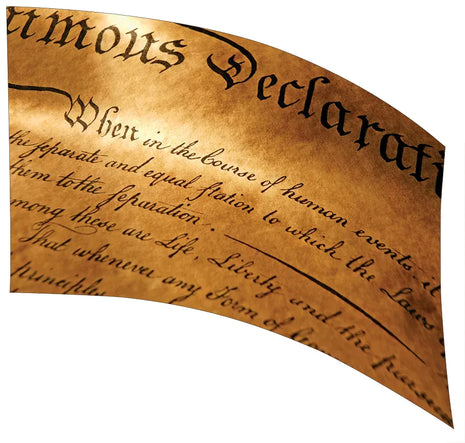 imous Declarati
When in the Course of human events, it
the separate and equal station to which the Laws
them to the separation.
mong these are Life, Liberty and the pursui
That whenever any Form of
principl